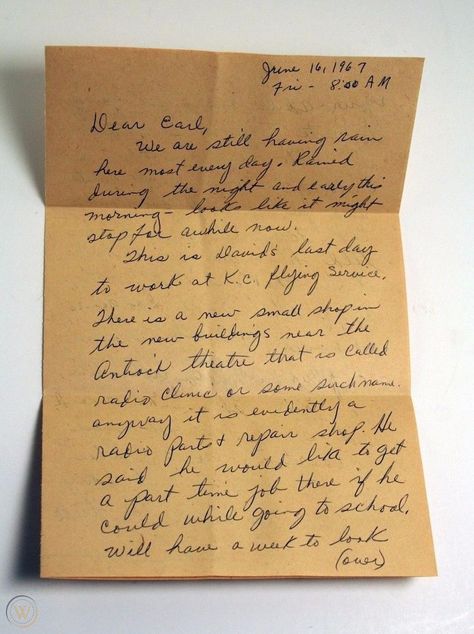 June 16, 1967
Fri - 8:00 AM
Dear Earl,
We are still having rain
here most every day. Rained
during the night and early this
morning - looks like it might
stop for awhile now.
This is David's last day
to work at K.C. flying service.
There is a new small shop in
the new buildings near the
Antioch theatre that is called
radio clinic or some such name.
anyway it is evidently a
radio parts & repair shop. He
said he would like to get
a part time job there if he
could while going to school.
Will have a week to look
(over)
W